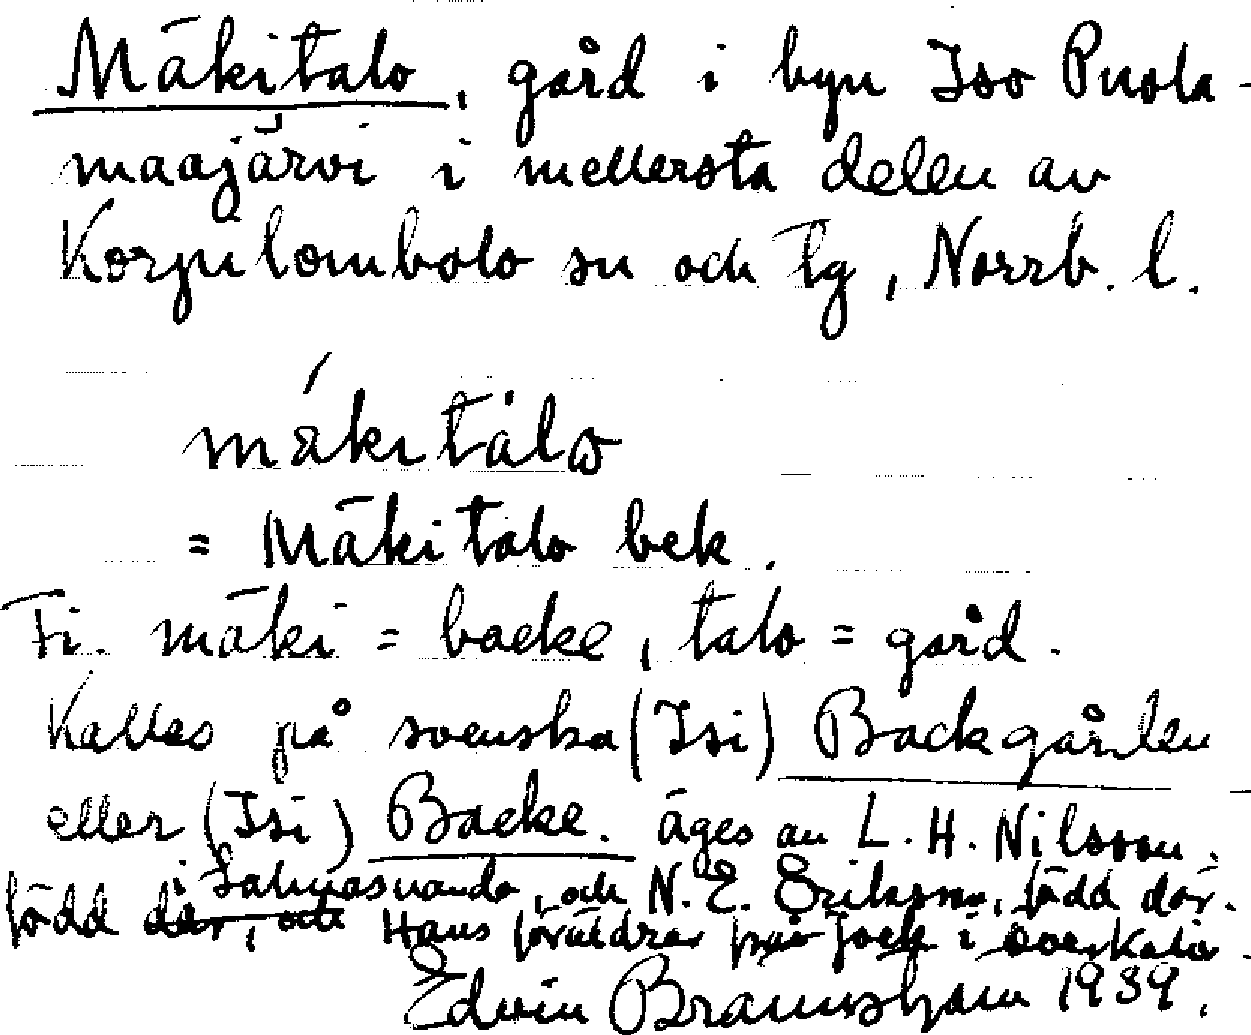 Mäkitalo, gård i byn Iso Puola-
maajärvi i mellersta delen av
Korpilombolo sn och tg, Norrb. l.
mäkitalo
= Mäkitalo bek.
Fi. mäki = backe, talo = gård.
Kallas på svenska (Isi) Backgården
eller (Isi) Backe. äges av L. H. Nilsson.
född i där, och N. E. Eriksson, född där.
Hans föräldrar från Jock i Överkalix.
Edvin Brännström 1939.